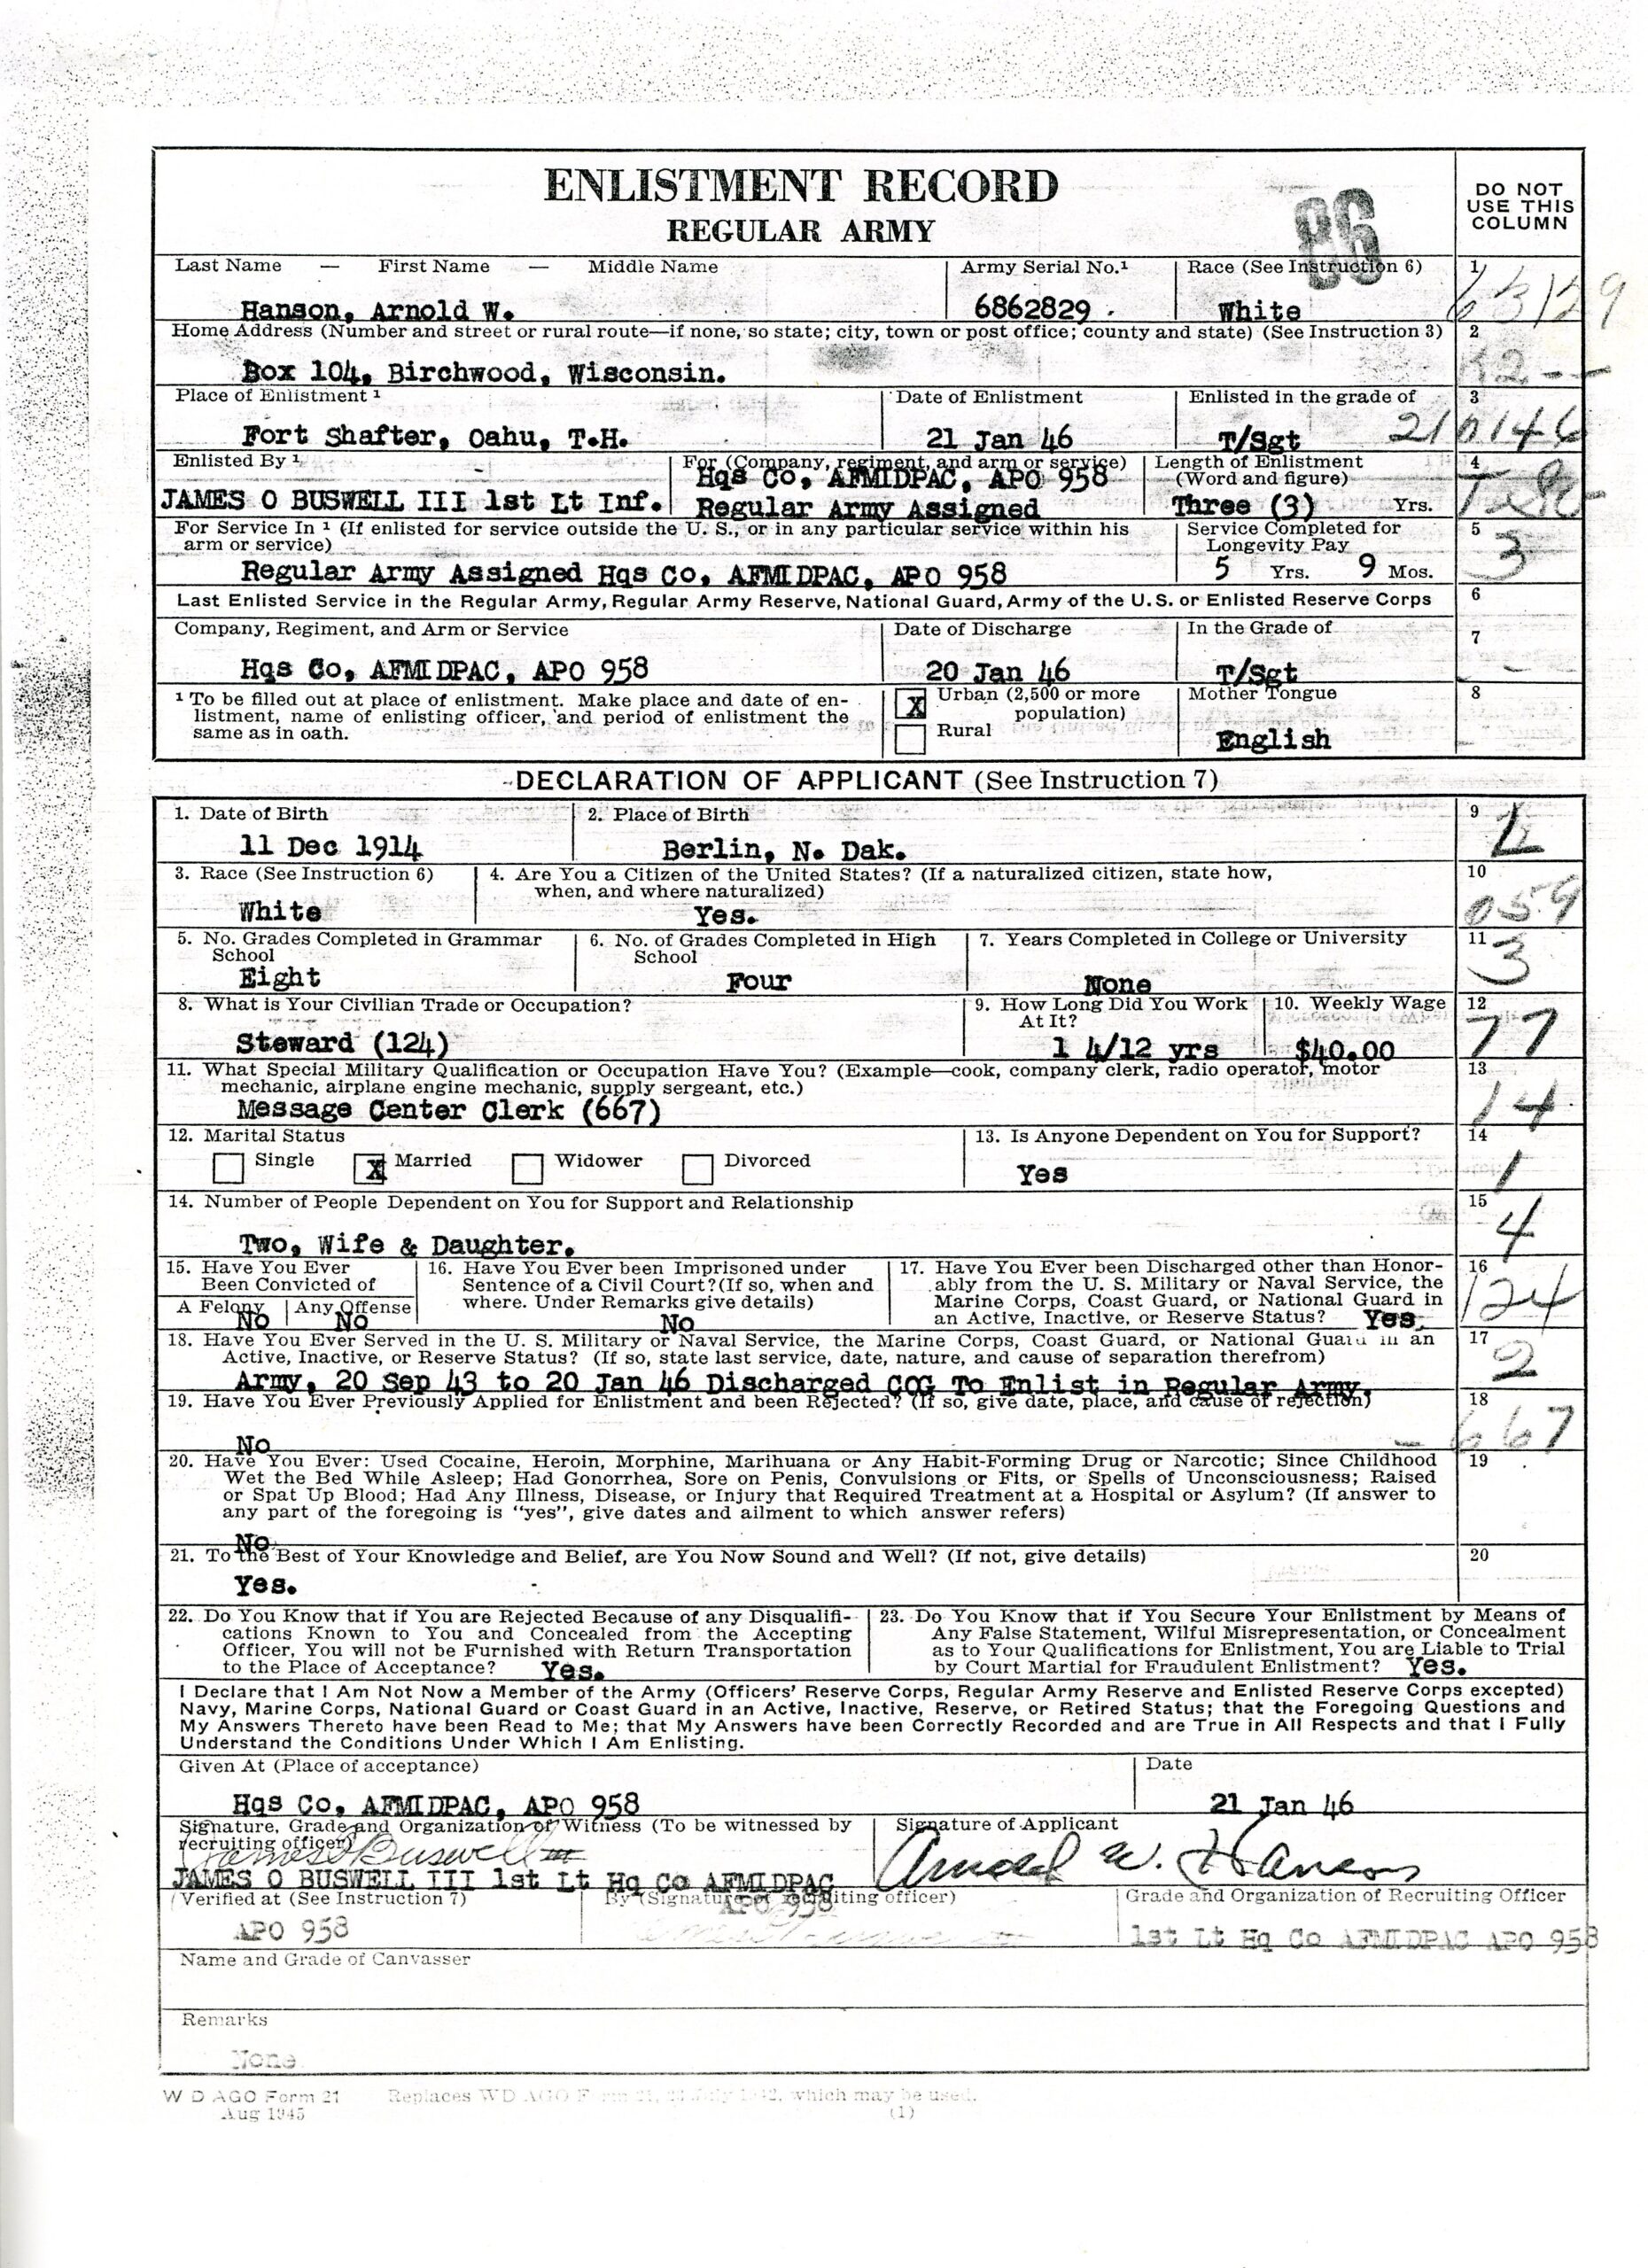 ENLISTMENT RECORD
REGULAR ARMY
86
DO NOT
USE THIS
COLUMN
Last Name — First Name — Middle Name
Hanson, Arnold W.
Army Serial No.¹
6862829
Race (See Instruction 6)
White
1
Home Address (Number and street or rural route—if none, so state; city, town or post office; county and state) (See Instruction 3)
Box 104, Birchwood, Wisconsin.
2
Place of Enlistment ¹
Fort Shafter, Oahu, T.H.
Date of Enlistment
21 Jan 46
Enlisted in the grade of
T/Sgt
3
210146
Enlisted By ¹
JAMES O BUSWELL III 1st Lt Inf.
For (Company, regiment, and arm or service)
Hqs Co, AFMIDPAC, APO 958
Regular Army Assigned
Length of Enlistment
(Word and figure)
Three (3) Yrs.
4
For Service In ¹ (If enlisted for service outside the U. S., or in any particular service within his
arm or service)
Regular Army Assigned Hqs Co, AFMIDPAC, APO 958
Service Completed for
Longevity Pay
5 Yrs. 9 Mos.
5
3
Last Enlisted Service in the Regular Army, Regular Army Reserve, National Guard, Army of the U. S. or Enlisted Reserve Corps
6
Company, Regiment, and Arm or Service
Hqs Co, AFMIDPAC, APO 958
Date of Discharge
20 Jan 46
In the Grade of
T/Sgt
7
¹ To be filled out at place of enlistment. Make place and date of en-
listment, name of enlisting officer, and period of enlistment the
same as in oath.
X Urban (2,500 or more
population)
Rural
Mother Tongue
English
8
DECLARATION OF APPLICANT (See Instruction 7)
1. Date of Birth
11 Dec 1914
2. Place of Birth
Berlin, N. Dak.
9
3. Race (See Instruction 6)
White
4. Are You a Citizen of the United States? (If a naturalized citizen, state how,
when, and where naturalized)
Yes.
10
059
5. No. Grades Completed in Grammar
School
Eight
6. No. of Grades Completed in High
School
Four
7. Years Completed in College or University
None
11
3
8. What is Your Civilian Trade or Occupation?
Steward (124)
9. How Long Did You Work
At It?
1 4/12 yrs
10. Weekly Wage
$40.00
12
77
11. What Special Military Qualification or Occupation Have You? (Example—cook, company clerk, radio operator, motor
mechanic, airplane engine mechanic, supply sergeant, etc.)
Message Center Clerk (667)
13
14
12. Marital Status
Single X Married Widower Divorced
13. Is Anyone Dependent on You for Support?
Yes
14
1
14. Number of People Dependent on You for Support and Relationship
Two, Wife & Daughter.
15
4
15. Have You Ever
Been Convicted of
A Felony Any Offense
No No
16. Have You Ever been Imprisoned under
Sentence of a Civil Court? (If so, when and
where. Under Remarks give details)
No
17. Have You Ever been Discharged other than Honor-
ably from the U. S. Military or Naval Service, the
Marine Corps, Coast Guard, or National Guard in
an Active, Inactive, or Reserve Status? Yes.
16
124
18. Have You Ever Served in the U. S. Military or Naval Service, the Marine Corps, Coast Guard, or National Guard in an
Active, Inactive, or Reserve Status? (If so, state last service, date, nature, and cause of separation therefrom)
Army, 20 Sep 43 to 20 Jan 46 Discharged COG To Enlist in Regular Army.
17
2
19. Have You Ever Previously Applied for Enlistment and been Rejected? (If so, give date, place, and cause of rejection)
No
18
667
20. Have You Ever: Used Cocaine, Heroin, Morphine, Marihuana or Any Habit-Forming Drug or Narcotic; Since Childhood
Wet the Bed While Asleep; Had Gonorrhea, Sore on Penis, Convulsions or Fits, or Spells of Unconsciousness; Raised
or Spat Up Blood; Had Any Illness, Disease, or Injury that Required Treatment at a Hospital or Asylum? (If answer to
any part of the foregoing is "yes", give dates and ailment to which answer refers)
No
19
21. To the Best of Your Knowledge and Belief, are You Now Sound and Well? (If not, give details)
Yes.
20
22. Do You Know that if You are Rejected Because of any Disqualifi-
cations Known to You and Concealed from the Accepting
Officer, You will not be Furnished with Return Transportation
to the Place of Acceptance? Yes.
23. Do You Know that if You Secure Your Enlistment by Means of
Any False Statement, Wilful Misrepresentation, or Concealment
as to Your Qualifications for Enlistment, You are Liable to Trial
by Court Martial for Fraudulent Enlistment? Yes.
I Declare that I Am Not Now a Member of the Army (Officers' Reserve Corps, Regular Army Reserve and Enlisted Reserve Corps excepted)
Navy, Marine Corps, National Guard or Coast Guard in an Active, Inactive, Reserve, or Retired Status; that the Foregoing Questions and
My Answers Thereto have been Read to Me; that My Answers have been Correctly Recorded and are True in All Respects and that I Fully
Understand the Conditions Under Which I Am Enlisting.
Given At (Place of acceptance)
Hqs Co, AFMIDPAC, APO 958
Date
21 Jan 46
Signature, Grade and Organization of Witness (To be witnessed by
recruiting officer)
James O Buswell III
JAMES O BUSWELL III 1st Lt Hq Co AFMIDPAC
APO 958
Signature of Applicant
Arnold W. Hanson
Verified at (See Instruction 7)
APO 958
By (Signature of recruiting officer)
Grade and Organization of Recruiting Officer
1st Lt Hq Co AFMIDPAC APO 958
Name and Grade of Canvasser
Remarks
None
W D AGO Form 21
Aug 1945
Replaces WD AGO Form 21, 24 July 1942, which may be used.
(1)